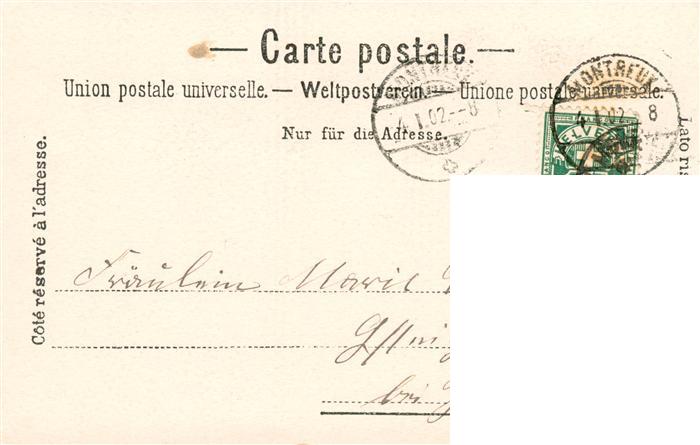 Carte postale.
Union postale universelle. — Weltpostverein. — Unione postale universale.
MONTREUX
4.I.02.–8
MONTREUX
4.I.02.–8
HELVETIA
Nur für die Adresse.
Côté réservé à l'adresse.
Lato ris
Fräulein Marie
bei